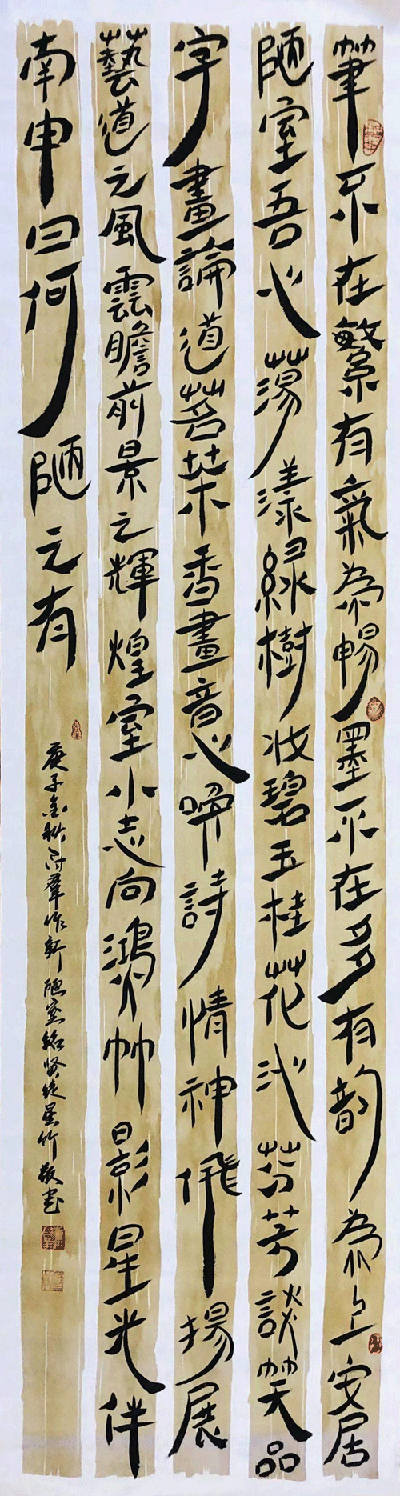 筆不在繁有氣為暢墨不在多有韵為上安居
陋室吾心蕩漾綠樹妝碧玉桂花沁芬芳談笑品
字畫論道茗茶香畫音心喚詩情神飛揚展
藝道之風雲瞻前景之輝煌室小志向鴻竹影星光伴
南申曰何陋之有
庚子金秋 羣作軒陋室銘 星竹敬書